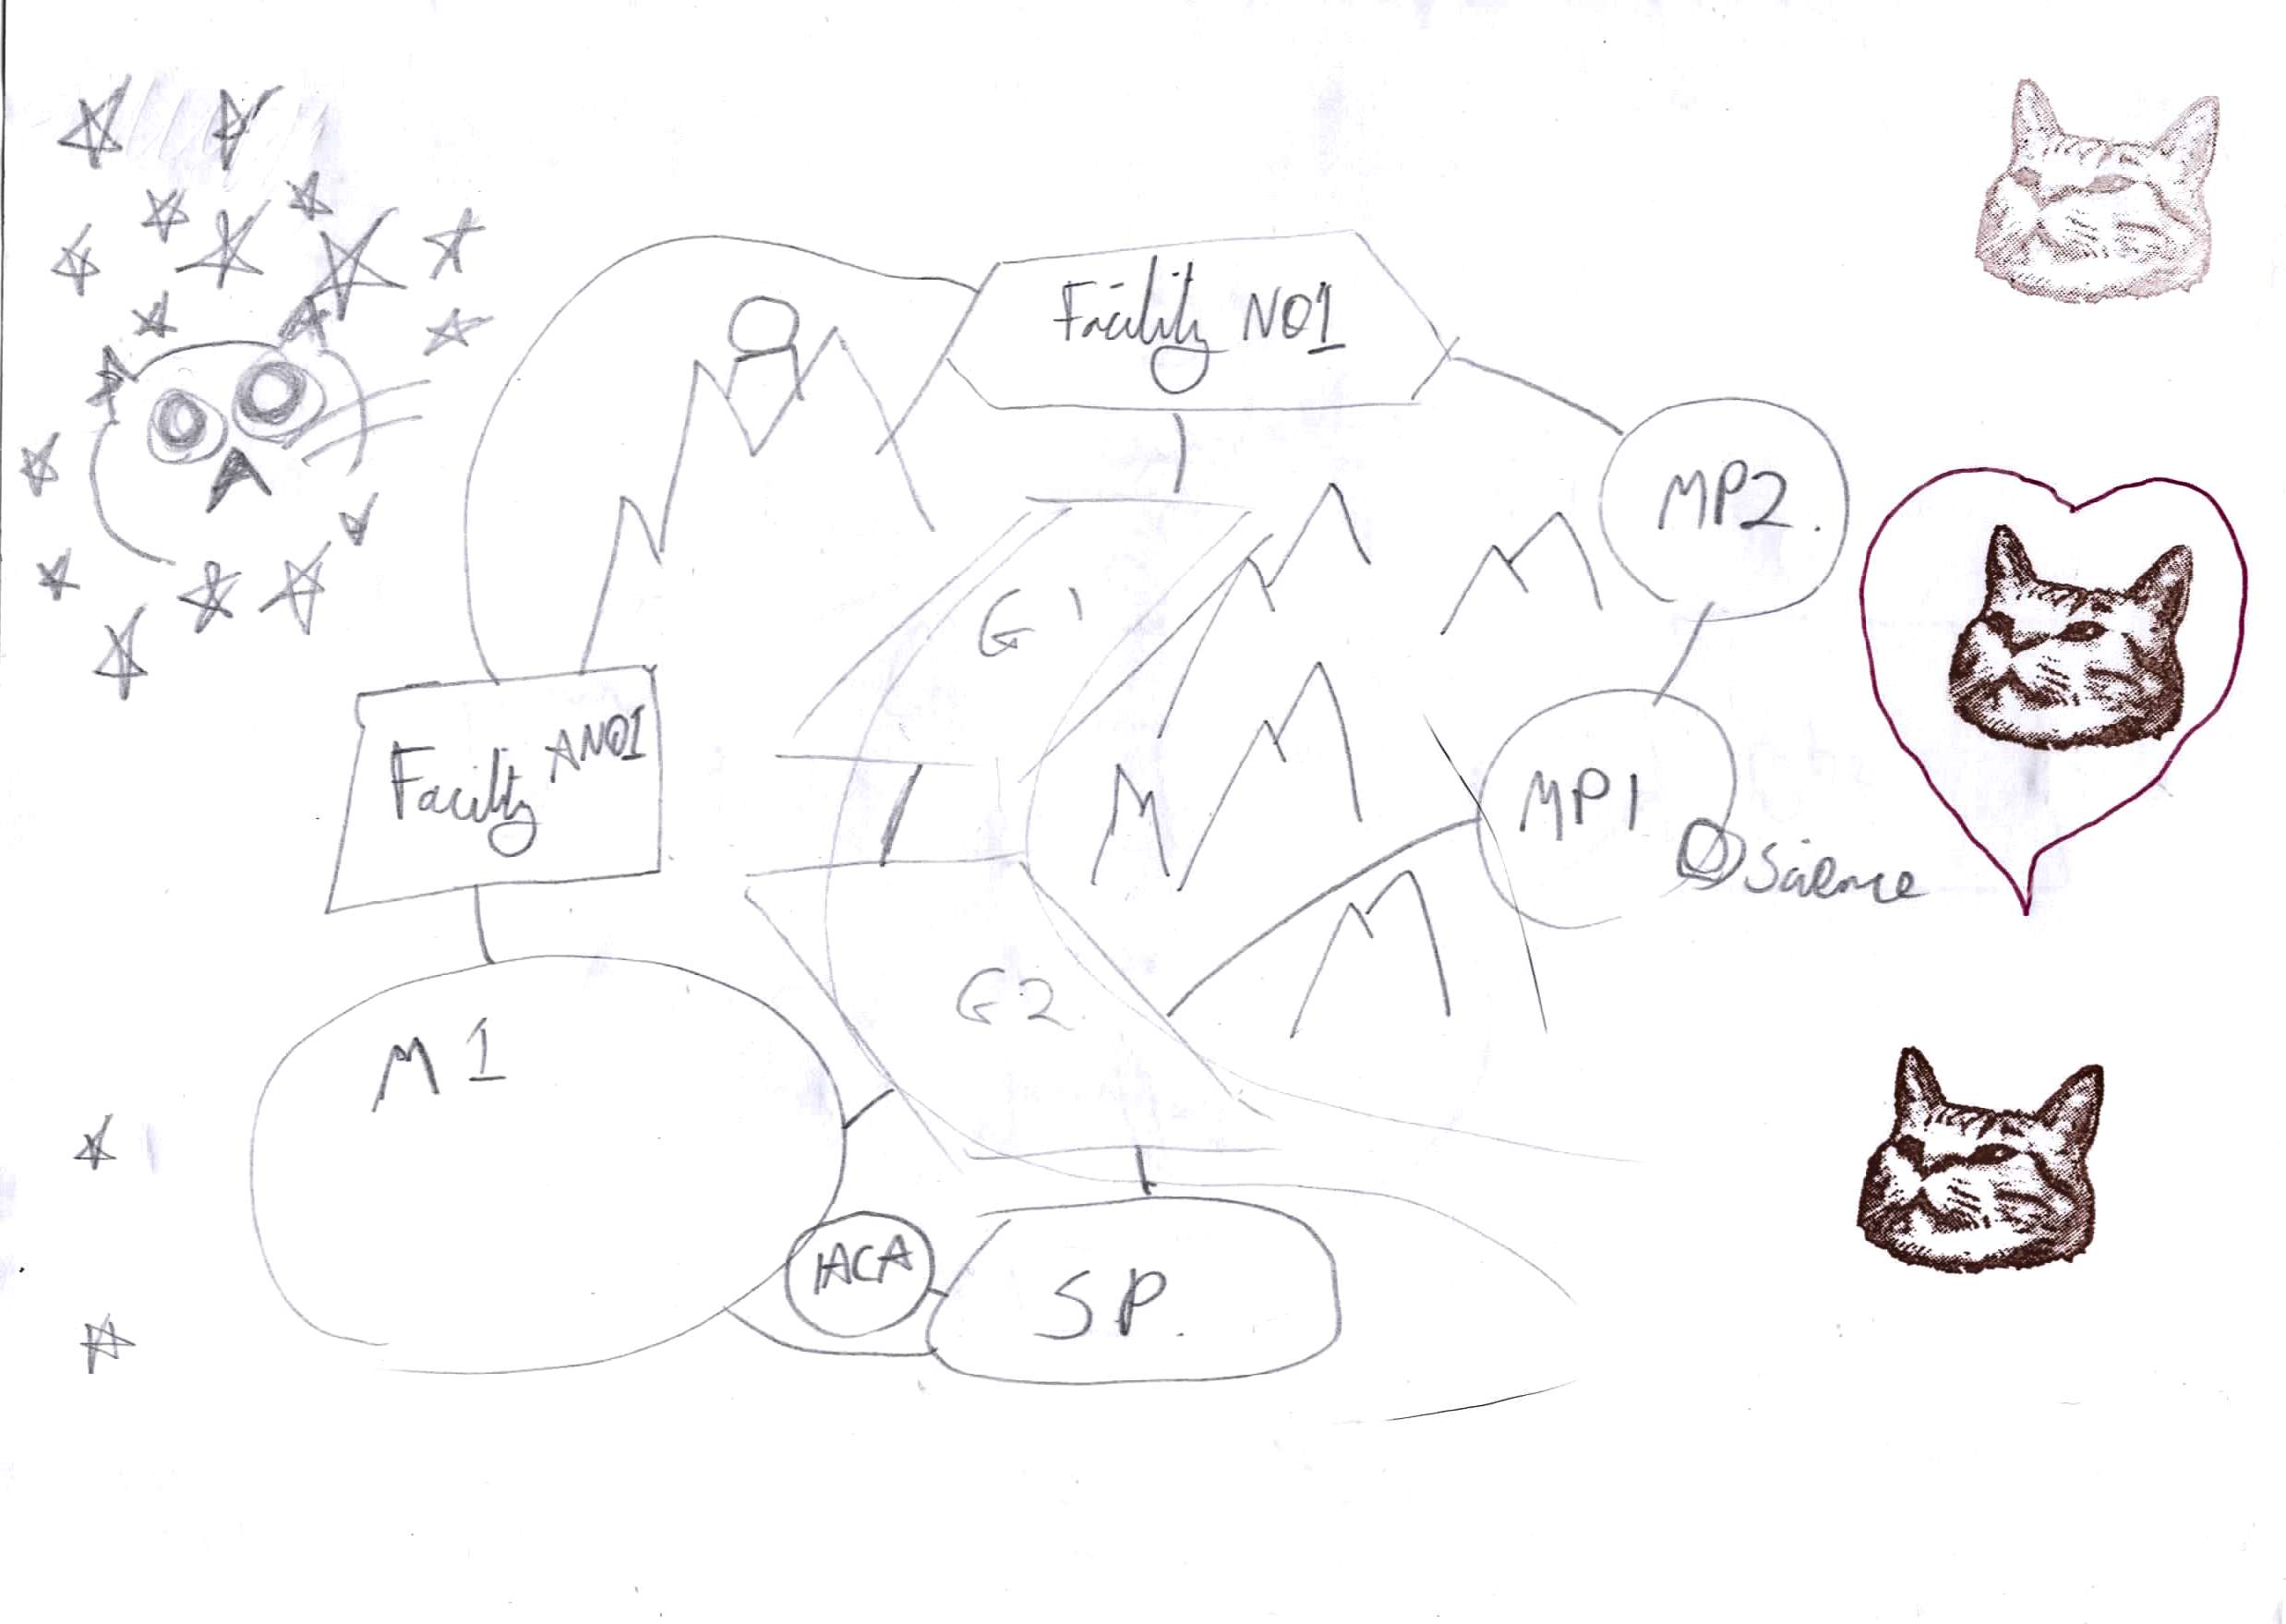 Facility NO1
MP2.
G1
Facilty ANO1
MP1
Science
G2
M1
IACA
SP.